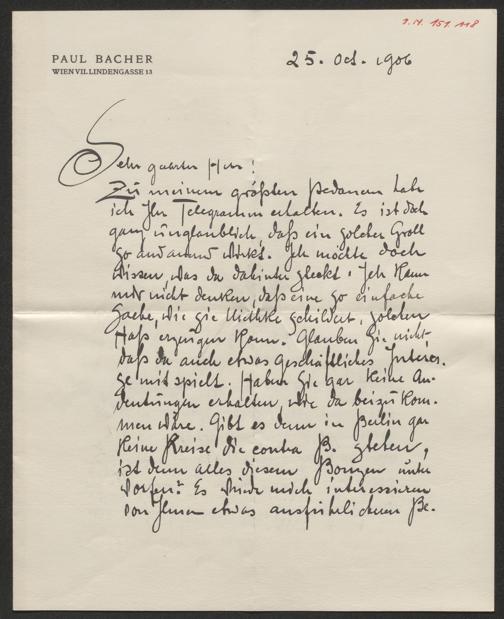 I.N. 151.118
PAUL BACHER
WIEN VII. LINDENGASSE 13
25. Oct. 1906
Sehr geehrter Herr!
Zu meinem größten Bedauern habe
ich Ihr Telegramm erhalten. Es ist doch
ganz unglaublich, daß ein solcher Groll
so andauernd wirkt. Ich möchte doch
wissen was da dahinter steckt. Ich kann
mir nicht denken, daß eine so einfache
Sache, wie sie schildert, solchen
Haß erzeugen kann. Glauben Sie nicht
daß da auch etwas geschäftliches Interes-
se mit spielt. Haben Sie gar keine An-
deutungen erhalten, wie da beizukom-
men wäre. Gibt es denn in Berlin gar
keine Kreise die contra B. stehen,
ist denn alles diesem Bonzen unter
worfen? Es würde mich interessieren
von Ihnen etwas ausführlicheren Be-